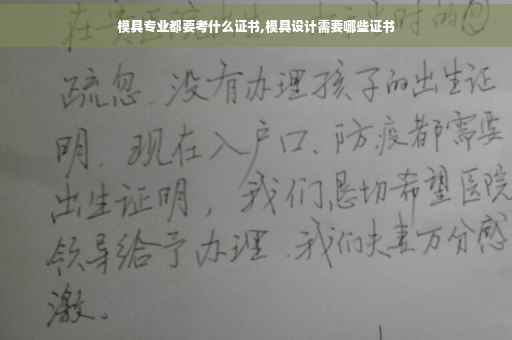 模具专业都要考什么证书,模具设计需要哪些证书
疏忽、没有办理孩子的出生证
明、现在入户口、防疫都需要
出生证明,我们恳切希望医院
领导给予办理、我们夫妻万分感
激。